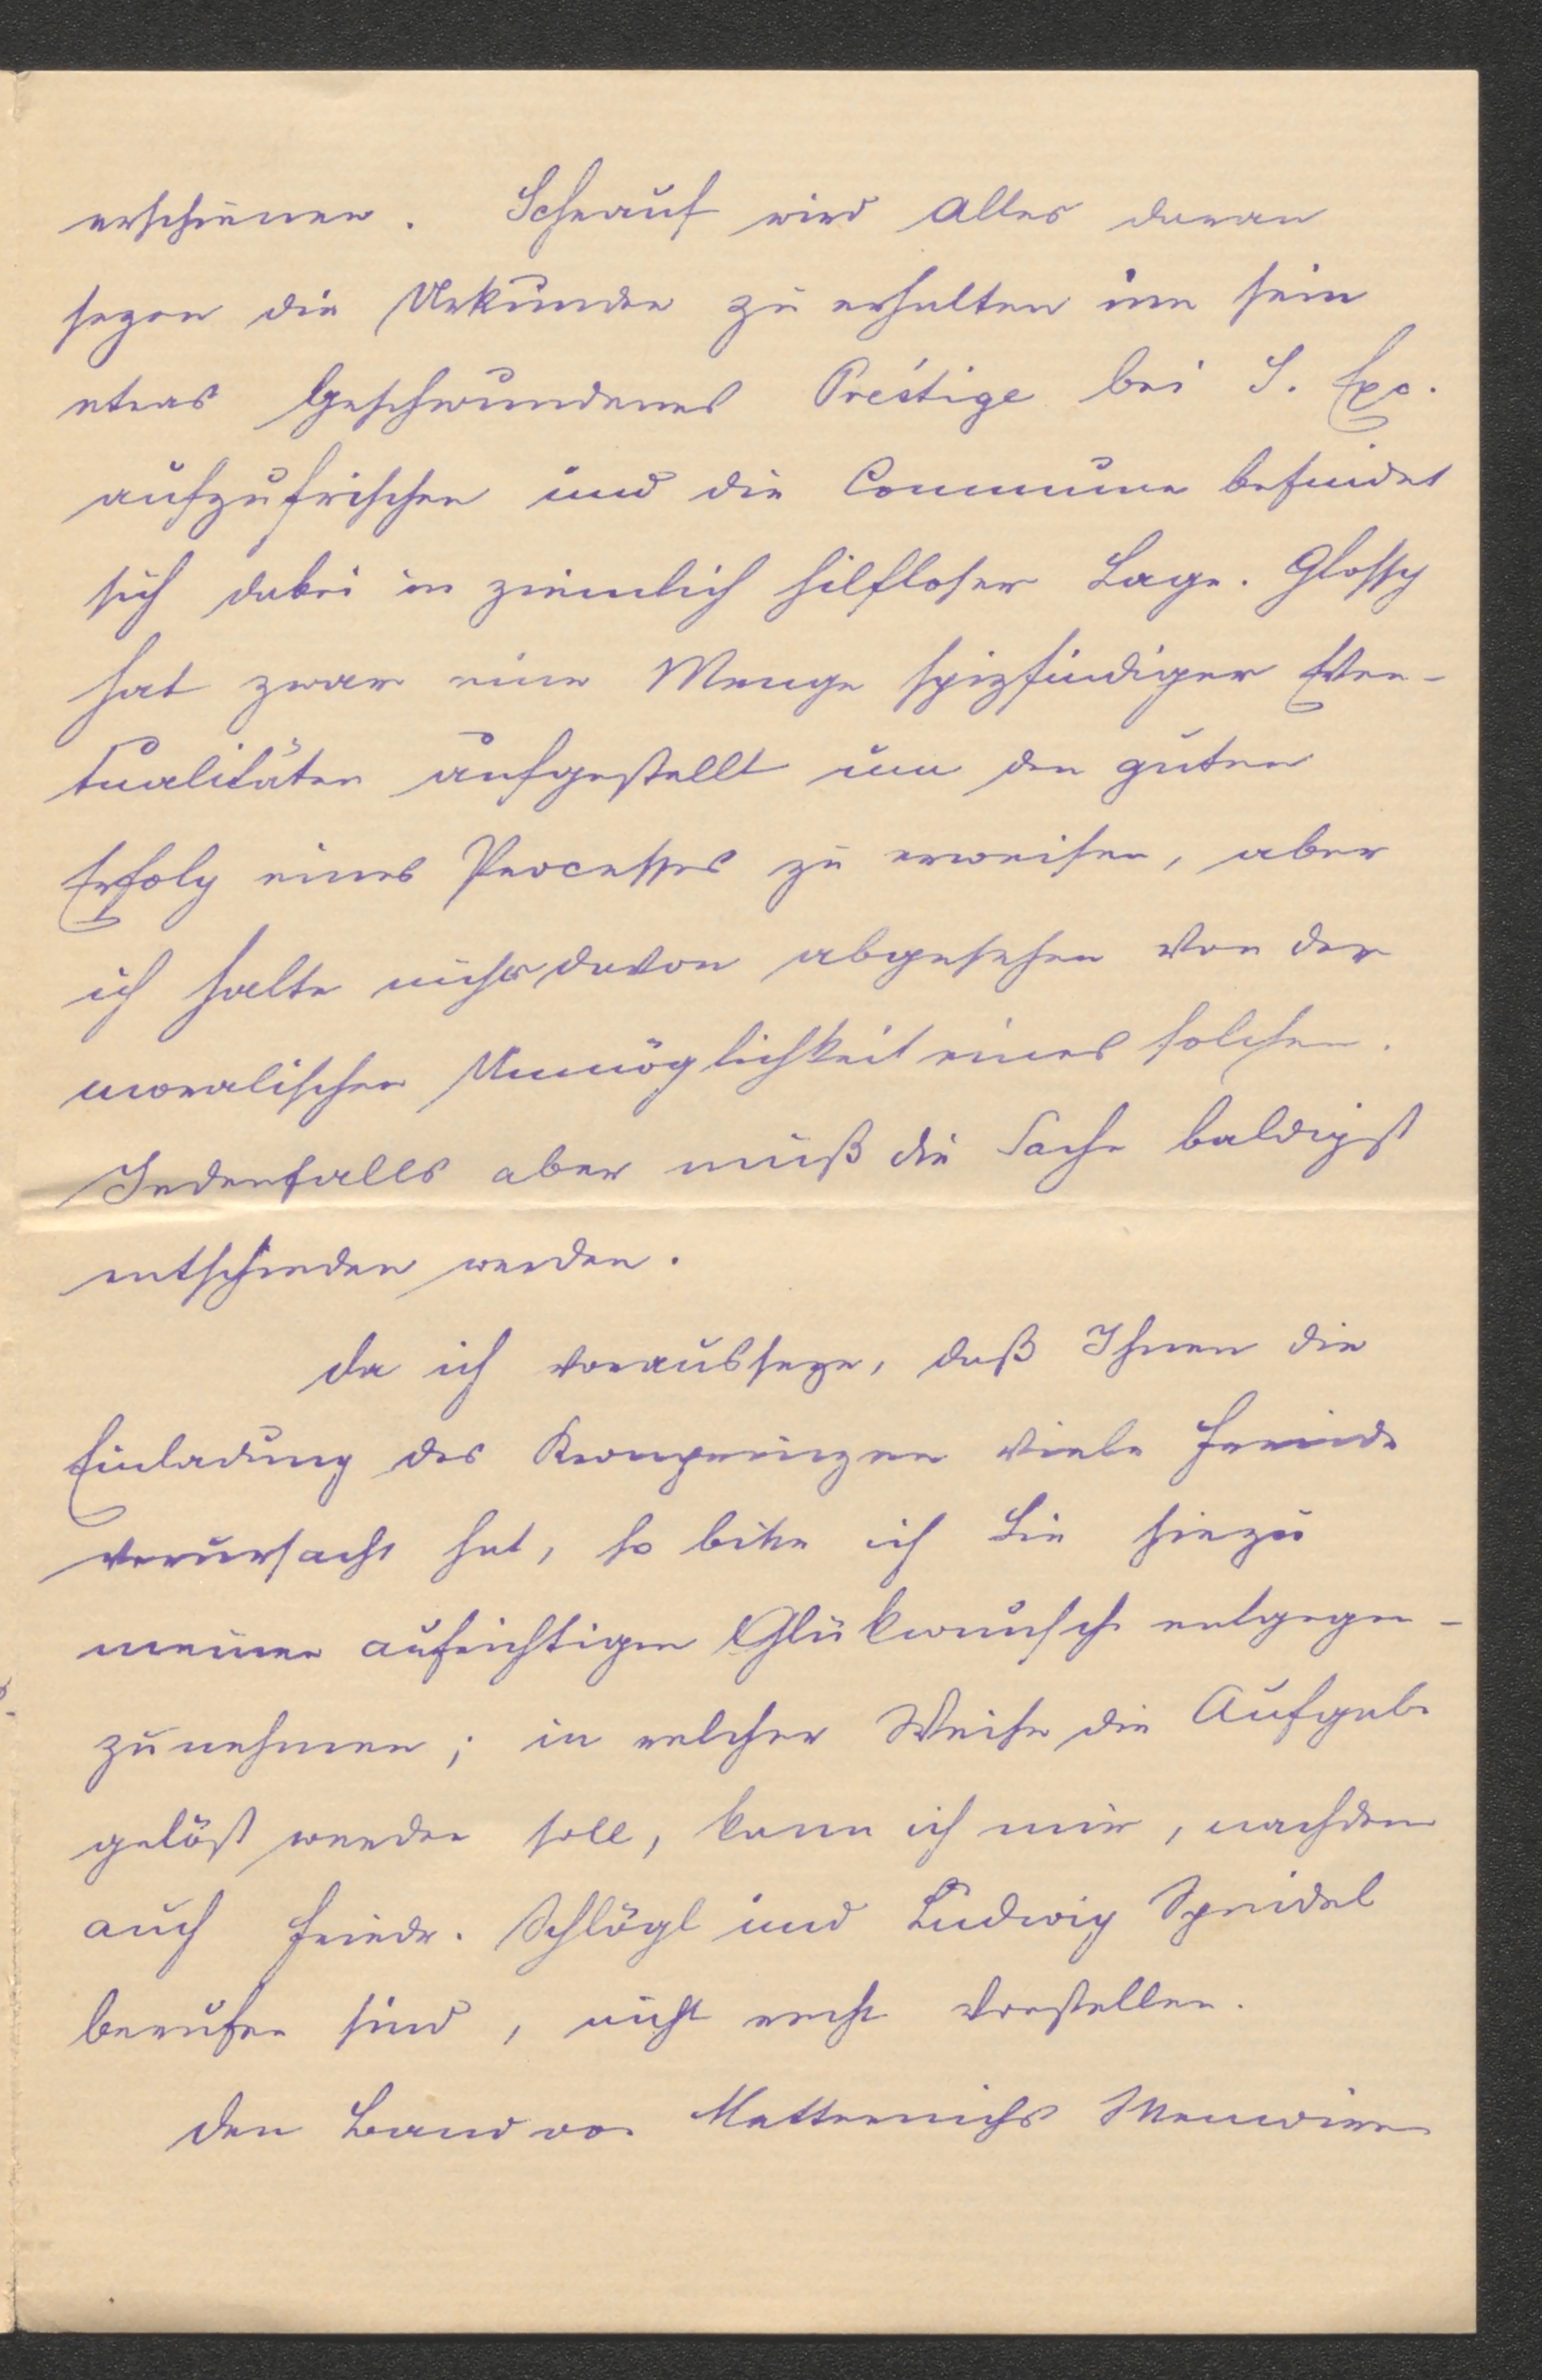 erschienen. Schrauf wird alles daran
sezen die Urkunde zu erhalten um sein
etwas Geschwundenes Prestige bei S. Exc.
aufzufrischen und die Commune befindet
sich dabei in ziemlich hilfloser Lage. Glossy
hat zwar eine Menge spizfindiger Even-
tualitäten aufgestellt um den guten
Erfolg eines Processes zu erweisen, aber
ich halte nichts davon abgesehen von der
moralischen Unmöglichkeit eines solchen.
Jedenfalls aber muß die Sache baldigst
entschieden werden.
Da ich vorausseze, daß Ihnen die
Einladung des Kronprinzen viele Freude
verursacht hat, so bitte ich Sie hiezu
meinen aufrichtigen Glükwunsch entgegen-
zunehmen; in welcher Weise die Aufgabe
gelöst werden soll, kann ich mir, nachdem
auch Friedr. Schlögl und Ludwig Speidel
berufen sind, nicht recht vorstellen.
Den Band von Metternichs Memoiren